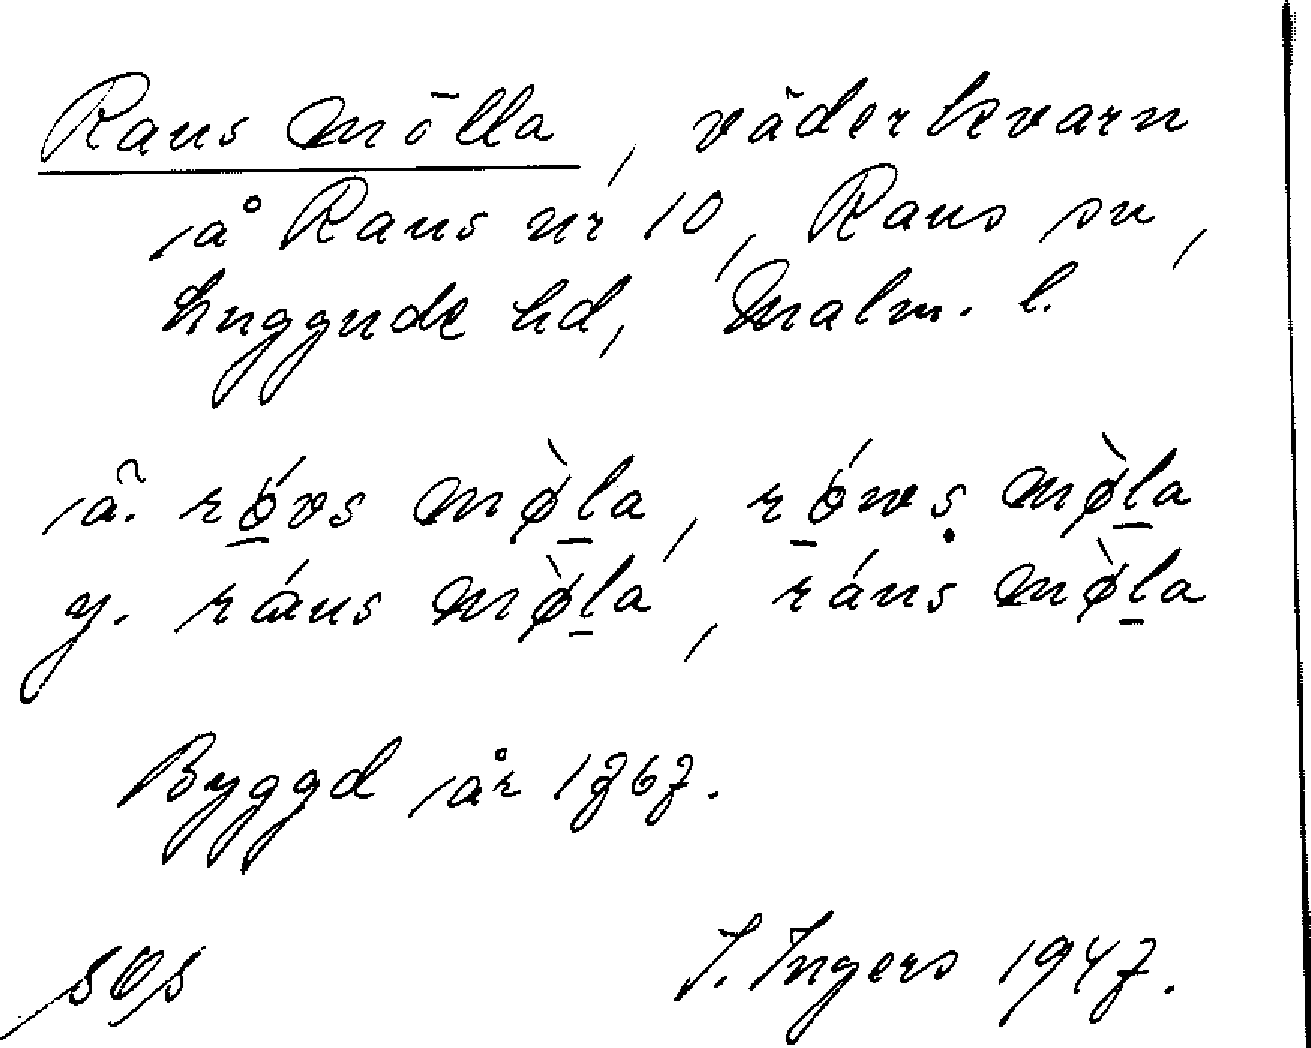 Raus mölla, väderkvarn
å Raus nr 10, Raus sn,
Luggude hd, Malm. l.
ä. rǫ́vs mø̀la, rǫ́ws mø̀la
y. ráus mø̀la, ráus mø̀la
Byggd år 1767.
sOs I. Ingers 1947.